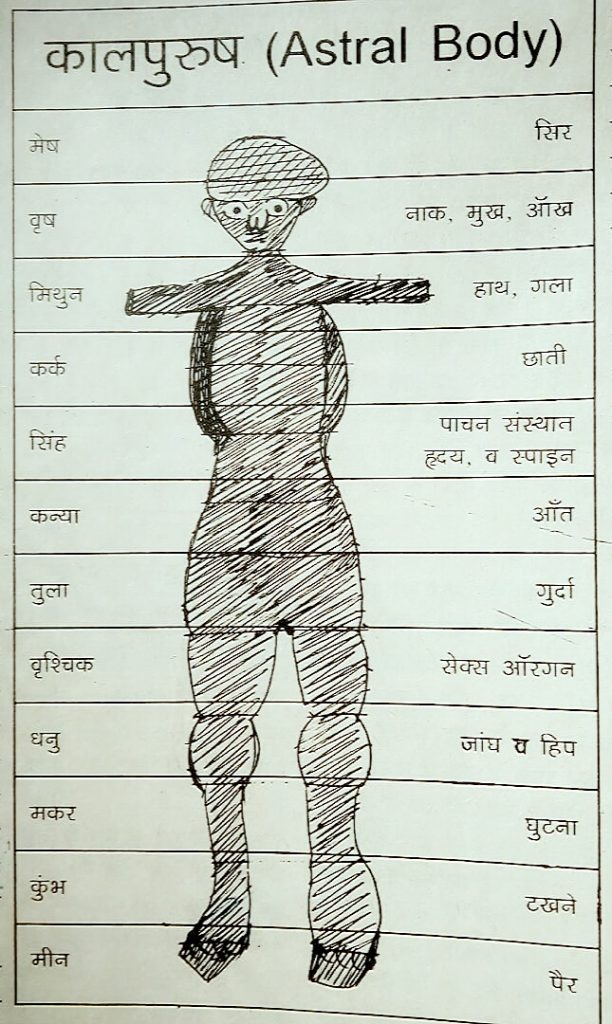 कालपुरुष (Astral Body)
मेष सिर
वृष नाक, मुख, ऑख
मिथुन हाथ, गला
कर्क छाती
सिंह पाचन संस्थात
हृदय, व स्पाइन
कन्या आँत
तुला गुर्दा
वृश्चिक सेक्स ऑरगन
धनु जांघ व हिप
मकर घुटना
कुंभ टखने
मीन पैर